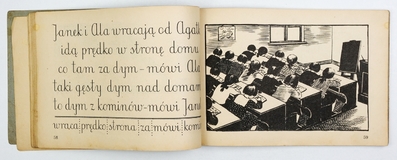 Janek i Ala wracają od Agat
idą prędko w stronę domu
co tam za dym-mówi Ala
taki gęsty dym nad domam
to dym z kominów-mówi Jane
wraca prędko strona za mówi komi